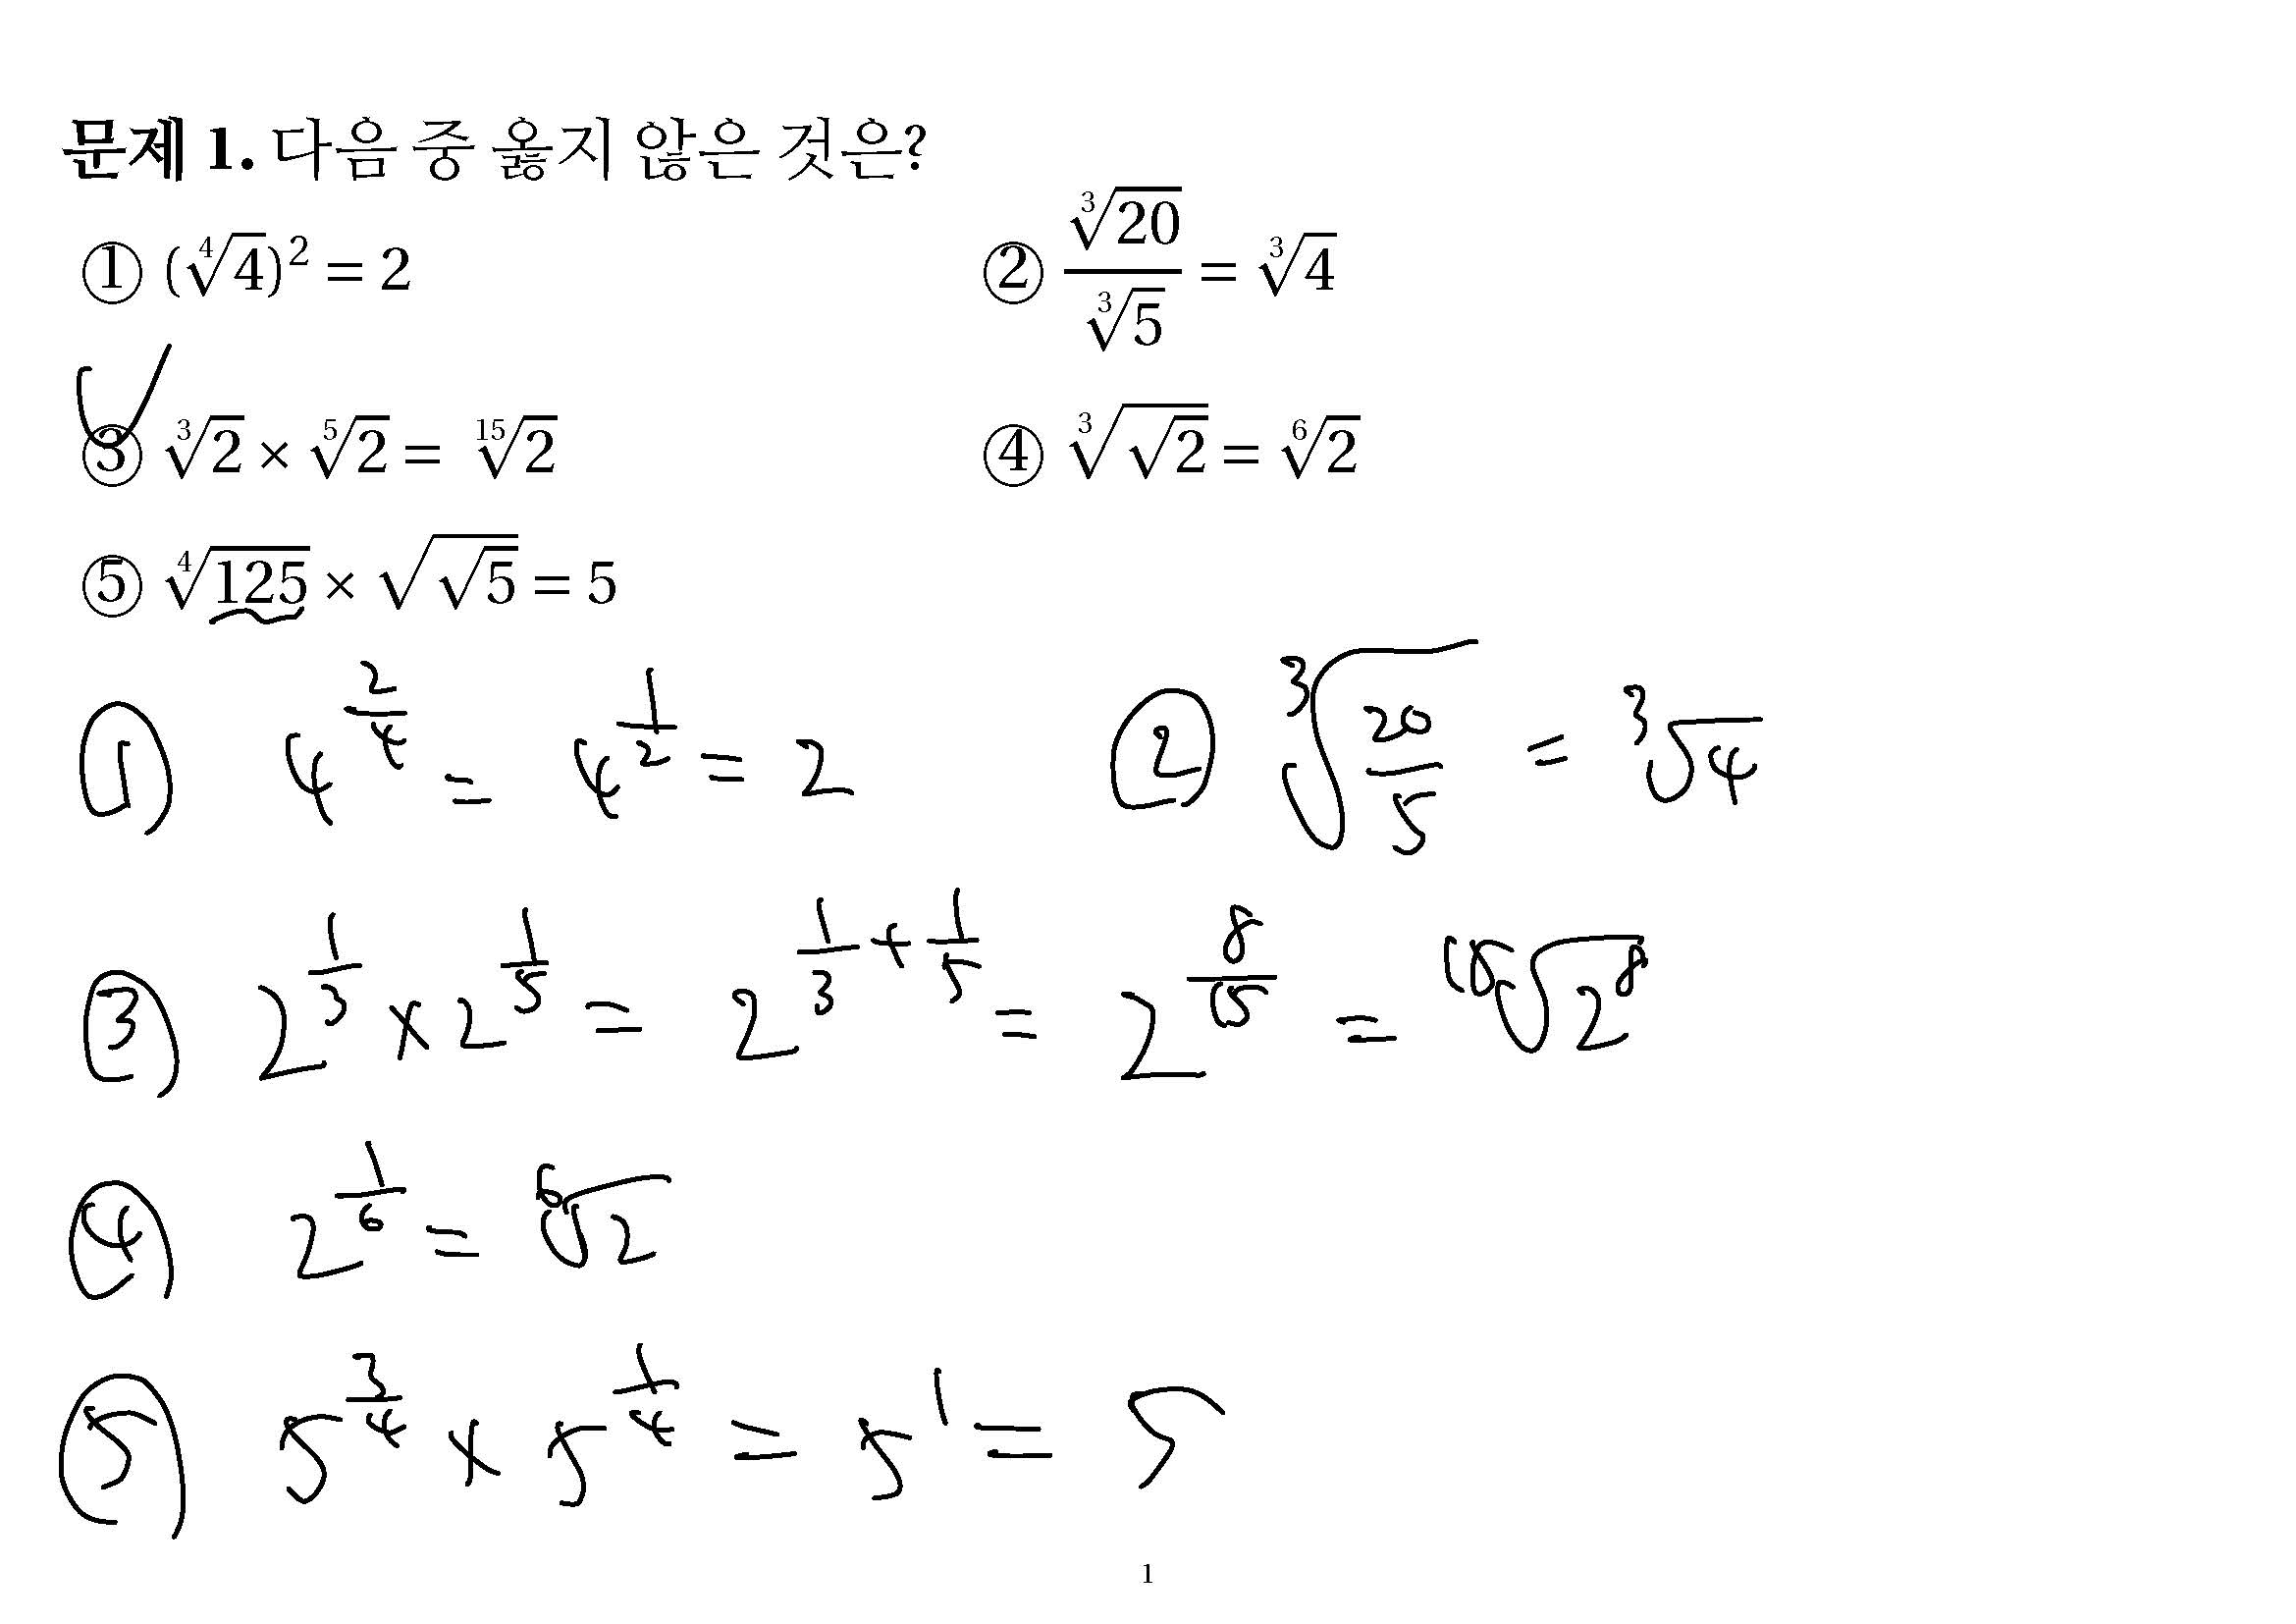 문제 1. 다음 중 옳지 않은 것은?
① (∜4)² = 2 ② ∛20/∛5 = ∛4
③ ∛2 × ⁵√2 = ¹⁵√2 ④ ∛(√2) = ⁶√2
⑤ ∜125 × √(√5) = 5
① 4^(2/4) = 4^(1/2) = 2 ② ∛(20/5) = ∛4
③ 2^(1/3) × 2^(1/5) = 2^(1/3 + 1/5) = 2^(8/15) = ¹⁵√(2⁸)
④ 2^(1/6) = ⁶√2
⑤ 5^(3/4) × 5^(1/4) = 5¹ = 5
1